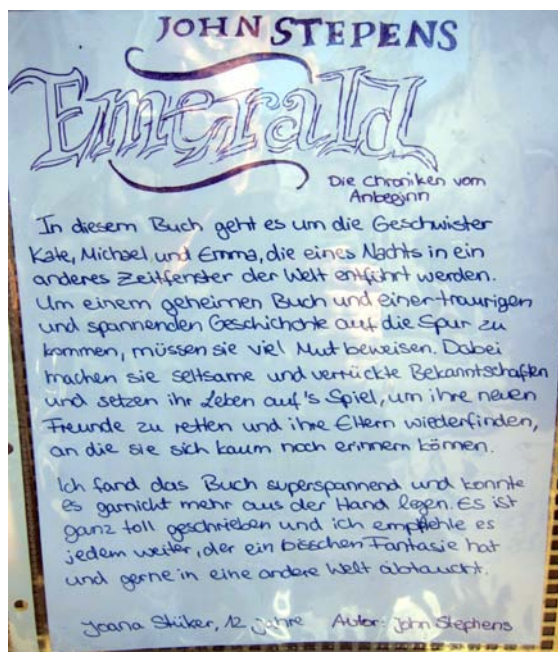 JOHN STEPENS
Emerald
Die Chroniken vom
Anbeginn
In diesem Buch geht es um die Geschwister
Kate, Michael und Emma, die eines Nachts in ein
anderes Zeitfenster der Welt entführt werden.
Um einem geheimen Buch und einer traurigen
und spannenden Geschichchte auf die Spur zu
kommen, müssen sie viel Mut beweisen. Dabei
machen sie seltsame und verrückte Bekanntschaften
und setzen ihr Leben auf's Spiel, um ihre neuen
Freunde zu retten und ihre Eltern wiederfinden,
an die sie sich kaum noch erinnern können.
Ich fand das Buch superspannend und konnte
es garnicht mehr aus der Hand legen. Es ist
ganz toll geschrieben und ich empfehle es
jedem weiter, der ein bisschen Fantasie hat
und gerne in eine andere Welt abtaucht.
Joana Stüker, 12 Jahre Autor: John Stephens